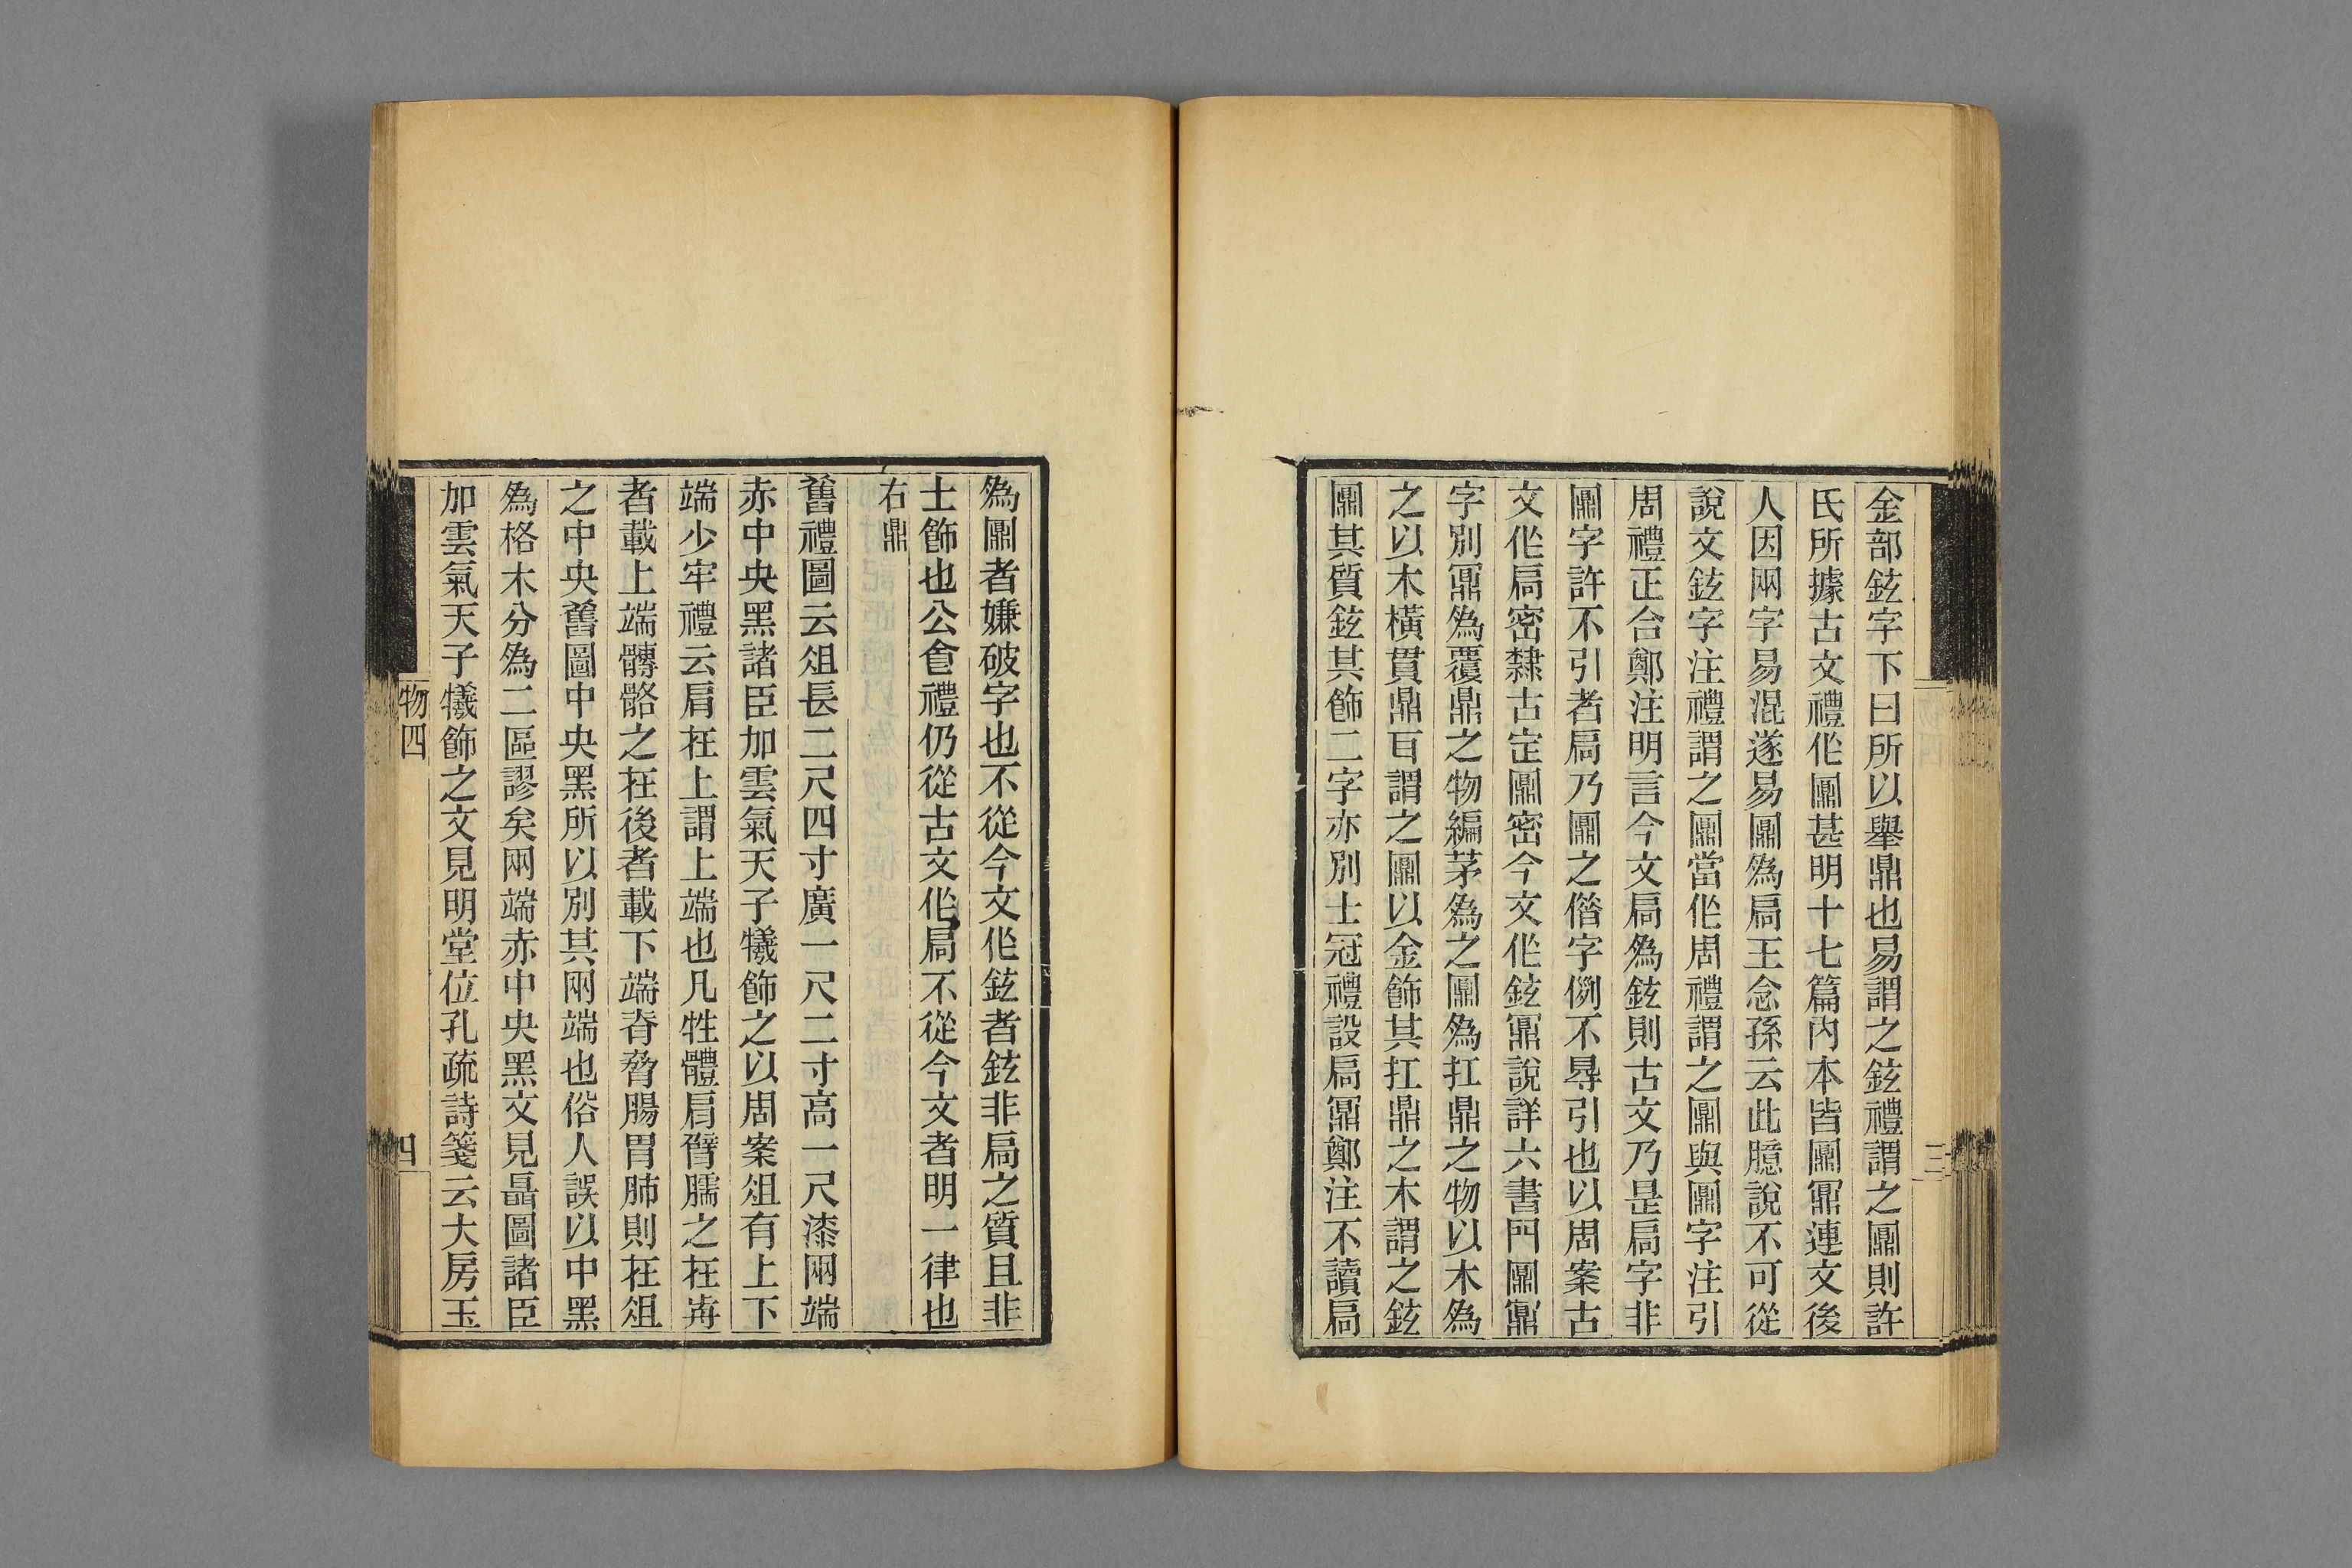 金部鉉字下曰所以舉鼎也易謂之鉉禮謂之鼏則許
氏所據古文禮作鼏甚明十七篇內本皆鼏鼏連文後
人因兩字易混遂易鼏爲扃王念孫云此臆說不可從
說文鉉字注禮謂之鼏當作周禮謂之鼏與鼏字注引
周禮正合鄭注明言今文扃爲鉉則古文乃是扃字非
鼏字許不引者扃乃鼏之借字例不得引也以周案古
文作扃密隸古定鼏密今文作鉉鼏說詳六書門鼏鼏
字別鼏爲覆鼎之物編茅爲之鼏爲扛鼎之物以木爲
之以木橫貫鼎耳謂之鼏以金飾其扛鼎之木謂之鉉
鼏其質鉉其飾二字亦別士冠禮設扃鼏鄭注不讀扃
爲鼏者嫌破字也不從今文作鉉者鉉非扃之質且非
士飾也公食禮仍從古文作扃不從今文者明一律也
右鼎
舊禮圖云俎長二尺四寸廣一尺二寸高一尺漆兩端
赤中央黑諸臣加雲氣天子犧飾之以周案俎有上下
端少牢禮云肩在上謂上端也凡牲體肩臂臑之在前
者載上端膊骼之在後者載下端脊脅腸胃肺則在俎
之中央舊圖中央黑所以別其兩端也俗人誤以中黑
爲格木分爲二區謬矣兩端赤中央黑文見聶圖諸臣
加雲氣天子犧飾之文見明堂位孔疏詩箋云大房玉
物四
四